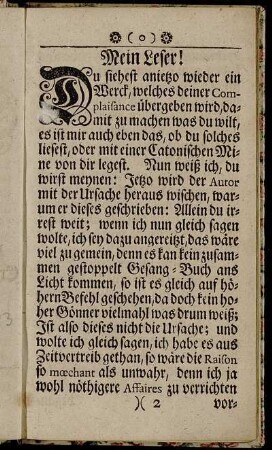 (o)
Mein Leser!
DU siehest anietzo wieder ein
Werck, welches deiner Com-
plaisance übergeben wird, da-
mit zu machen was du wilt,
es ist mir auch eben das, ob du solches
liesest, oder mit einer Catonischen Mi-
ne von dir legest. Nun weiß ich, du
wirst meynen: Jetzo wird der Autor
mit der Ursache heraus wischen, war-
um er dieses geschrieben: Allein du ir-
rest weit; wenn ich nun gleich sagen
wolte, ich sey dazu angereitzt, das wäre
viel zu gemein, denn es kan kein zusam-
men gestoppelt Gesang-Buch ans
Licht kommen, so ist es gleich auf hö-
hern Befehl geschehen, da doch kein ho-
her Gönner vielmahl was drum weiß;
Ist also dieses nicht die Ursache; und
wolte ich gleich sagen, ich habe es aus
Zeitvertreib gethan, so wäre die Raison
so mœchant als unwahr, denn ich ja
wohl nöthigere Affaires zu verrichten
)( 2 vor-